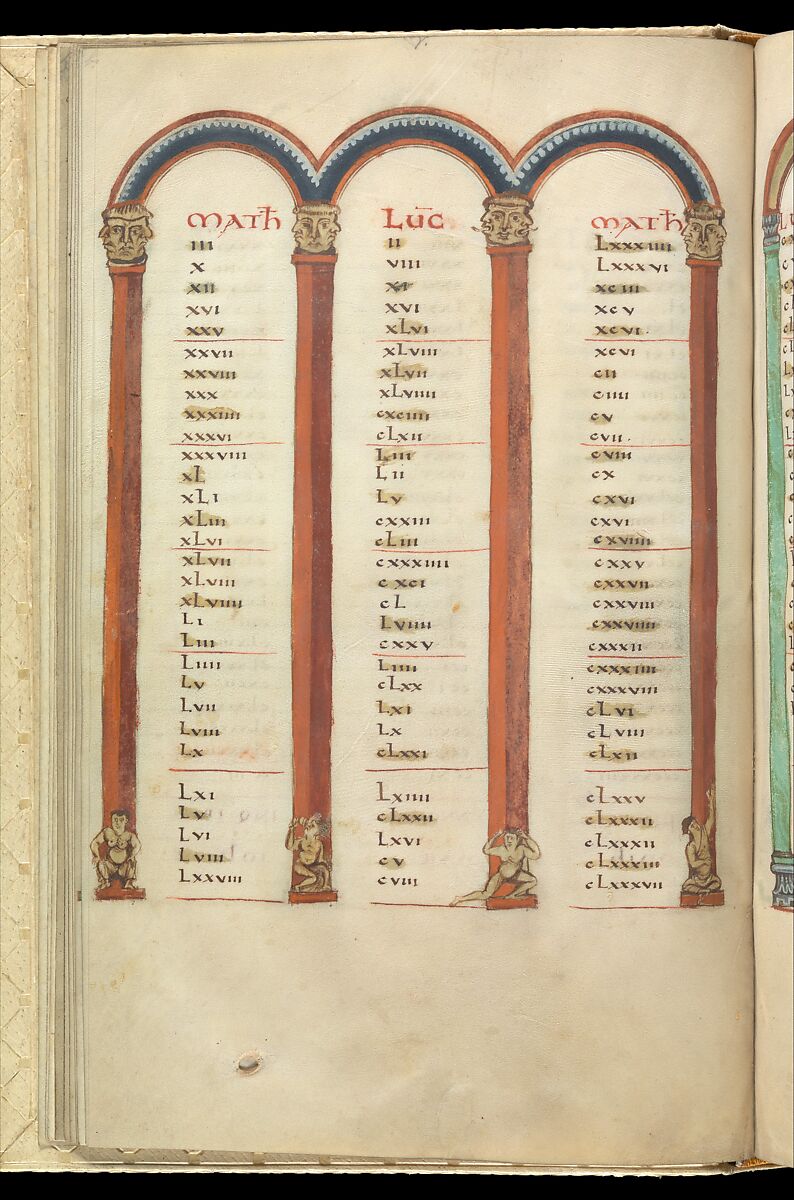 MATH LUC MATH
III II LXXXIIII
X VIII LXXXVI
XII XI XCIII
XVI XVI XCV
XXV XLVI XCVI
XXVII XLVIII XCVI
XXVIII XLVII CII
XXX XLVIIII CIIII
XXXIIII CXCIIII CV
XXXVI CLXII CVII
XXXVIII LIII CVIII
XL LII CX
XLI LV CXVI
XLIII CXXIII CXVI
XLVI CLIII CXVIIII
XLVII CXXXIIII CXXV
XLVIII CXCI CXXVII
XLVIIII CL CXXVIII
LI LVIIII CXXVIIII
LIII CXXV CXXXII
LIIII LIIII CXXXIIII
LV CLXX CXXXVIII
LVII LXI CLVI
LVIII LX CLVIII
LX CLXXI CLXII
LXI LXIIII CLXXV
LV CLXXII CLXXXII
LVI LXVI CLXXXII
LVIII CV CLXXXIII
LXXVIII CVIII CLXXXVII